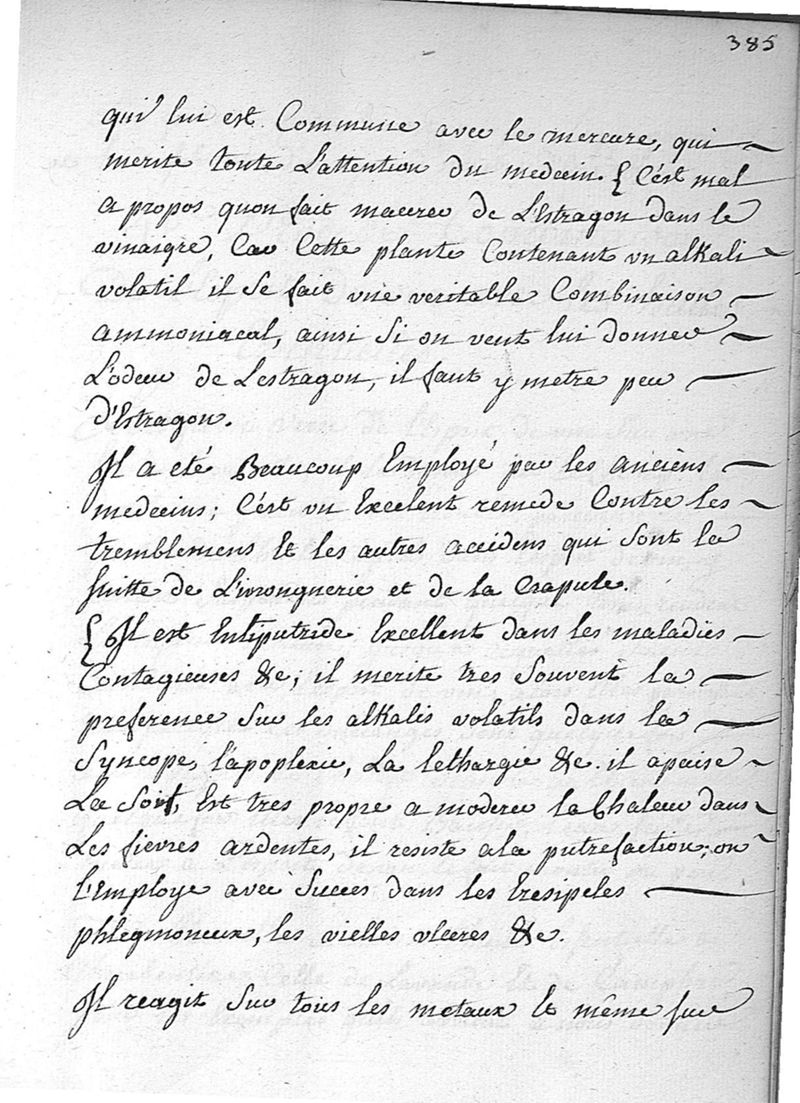 385
qui lui est Commune avec le mercure, qui
merite toute L'attention du medecin. { C'est mal
a propos quon fait macerer de L'Estragon dans le
vinaigre, Car Cette plante Contenant un alkali
volatil il se fait une veritable Combinaison
ammoniacal, ainsi Si on veut lui donner
L'odeur de Lestragon, il faut y metre peu
d'Estragon.
Il a eté Beaucoup Employé par les anciens
medecins; C'est un Excelent remede Contre les
tremblemens Et les autres accidens qui Sont la
suitte de L'ivrongnerie et de la Crapule.
{ Il est Entiputride Excellent dans les maladies
Contagieuses &c; il merite tres Souvent la
preference Sur les alkalis volatils dans la
Syncope, l'apoplexie, La lethargie &c. il apaise
La Soif, Est tres propre a moderer la Chaleur dans
Les fievres ardentes, il resiste a la putrefaction; on
l'Employe avec Succes dans les Eresipeles
phlegmoneux, les vielles ulceres &c.
Il reagit Sur tous les metaux Et même sur